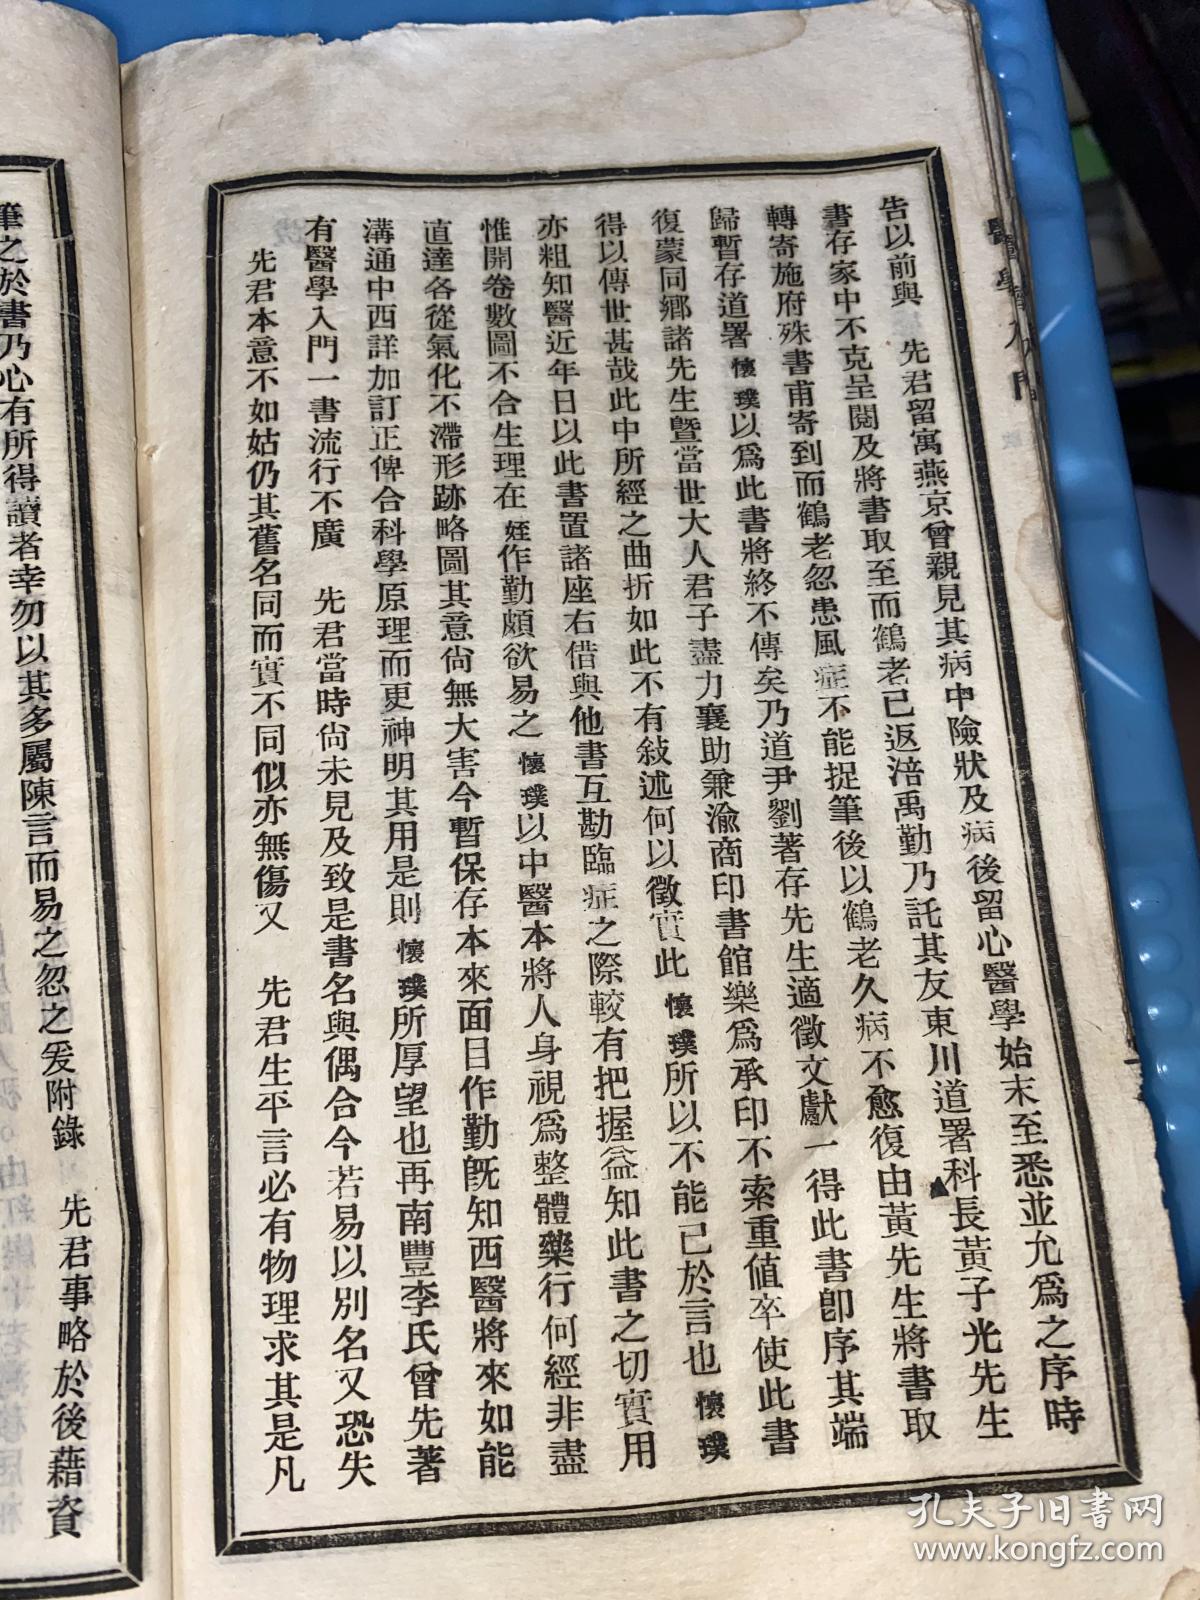 醫學入門
告以前與 先君留寓燕京曾親見其病中險狀及病後留心醫學始末至悉並允爲之序時
書存家中不克呈閱及將書取至而鶴老已返涪禹勤乃託其友東川道署科長黃子光先生
轉寄施府殊書甫寄到而鶴老忽患風症不能捉筆後以鶴老久病不愈復由黃先生將書取
歸暫存道署懷璞以爲此書將終不傳矣乃道尹劉著存先生適徵文獻一得此書卽序其端
復蒙同鄉諸先生曁當世大人君子盡力襄助兼渝商印書館樂爲承印不索重值卒使此書
得以傳世甚哉此中所經之曲折如此不有敍述何以徵實此懷璞所以不能已於言也懷璞
亦粗知醫近年日以此書置諸座右借與他書互勘臨症之際較有把握益知此書之切實用
惟開卷數圖不合生理在姪作勤頗欲易之懷璞以中醫本將人身視爲整體藥行何經非盡
直達各從氣化不滯形跡略圖其意尙無大害今暫保存本來面目作勤旣知西醫將來如能
溝通中西詳加訂正俾合科學原理而更神明其用是則懷璞所厚望也再南豐李氏曾先著
有醫學入門一書流行不廣 先君當時尙未見及致是書名與偶合今若易以別名又恐失
先君本意不如姑仍其舊名同而實不同似亦無傷又 先君生平言必有物理求其是凡
筆之於書乃心有所得讀者幸勿以其多屬陳言而易之忽之爰附錄 先君事略於後藉資
孔夫子旧书网
www.kongfz.com